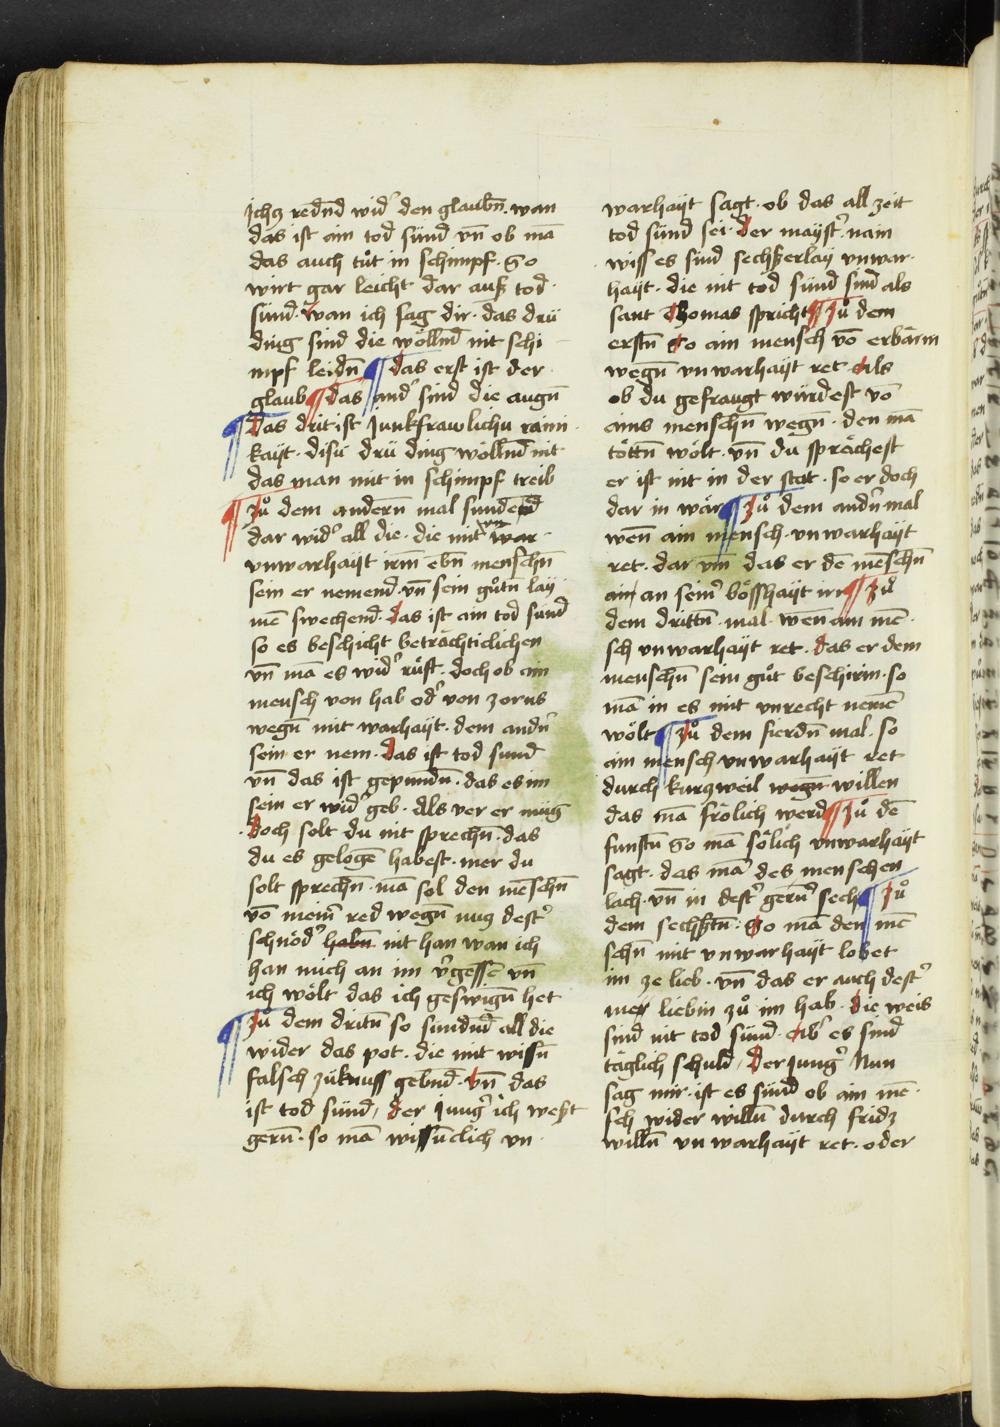 ichz redñd wid᷑ den glaubñ. wan
das ist ain tod sünd vñ ob mā
das auch tůt in schimpf. So
wirt gar leicht dar auß tod
sünd. wan ich sag dir. das drü
ding sind die wöllnd nit schi
mpf leidñ ¶ das erst ist der
glaub ¶ das and᷑ sind die augñ
¶ Das drit ist Junkfrawlichu raini
kayt. disü drü ding wöllnd nit
das man mit in schimpf treib
¶ Zů dem andern mal sundend
dar wid᷑ all die. die mit
vnwarhayt irm ebñ menschñ
sein er nemend. vñ sein gůtñ lay
mē swechend. das ist ain tod sünd
so es beschicht betrachticlichen
vñ mā es wid᷑ růft. doch ob ain
mensch von hab od᷑ von zorns
wegñ mit warhayt. dem andñ
sein er nem. das ist tod sund
vñ das ist gepundñ. das es im
sein er wid᷑ geb. Als ver er mug
doch solt du nit sprechñ. das
du es gelogē habest. mer du
solt sprechñ. mā sol den mēschñ
vō meim᷑ red wegñ nug dest᷑
schnöd᷑ habñ nit han wan ich
han mich an im v᷑gessē vñ
ich wölt das ich geswigñ het
¶ Zů dem dritñ so sündnd all die
wider das pot. die mit wissñ
falsch züknuss gebnd. vñ das
ist tod sünd, der Jung᷑ ich west
gerñ. so mā wissñclich vn
warhayt sagt. ob das all zeit
tod sünd sei. der mayst᷑. nain
wiss es sind sechßerlay vnwar
hayt. die nit tod sünd sind als
sant Thomas spricht ¶ Zů dem
erstñ So ain mensch vō erbärm
wegñ vnwarhayt ret. Als
ob du gefraugt würdest vō
ains menschñ wegñ. den mā
töttñ wölt. vñ du sprächest
er ist nit in der stat. so er doch
dar in wär ¶ Zů dem andñ mal
wen ain mensch. vnwarhayt
ret. dar vm das er dē mēschñ
ain an sein᷑ bösshayt irr ¶ Zů
dem drittñ. mal. wen ain mē
sch vnwarhayt ret. das er dem
menschñ sein gůt beschirm. so
mā in es mit vnrecht nemē
wölt ¶ Zů dem fierdñ mal. so
ain mensch vnwarhayt ret
durch kurzweil wegñ willen
das mā frölich werd ¶ Zů dē
funftñ So mā sölich vnwarhayt
sagt. das mā des menschen
lach. vñ in dest᷑ gern᷑ sech ¶ Zů
dem sechßtñ. So mā den mē
schñ mit vnwarhayt lobet
im ze lieb. vñ das er auch dest᷑
mer liebin zů im hab. die weis
sind nit tod sünd. Ab᷑ es sind
täglich schuld, Der Jung᷑ Nun
sag mir. ist es sünd ob ain mē
sch wider willñ durch fridz
willñ vnwarhayt ret. oder